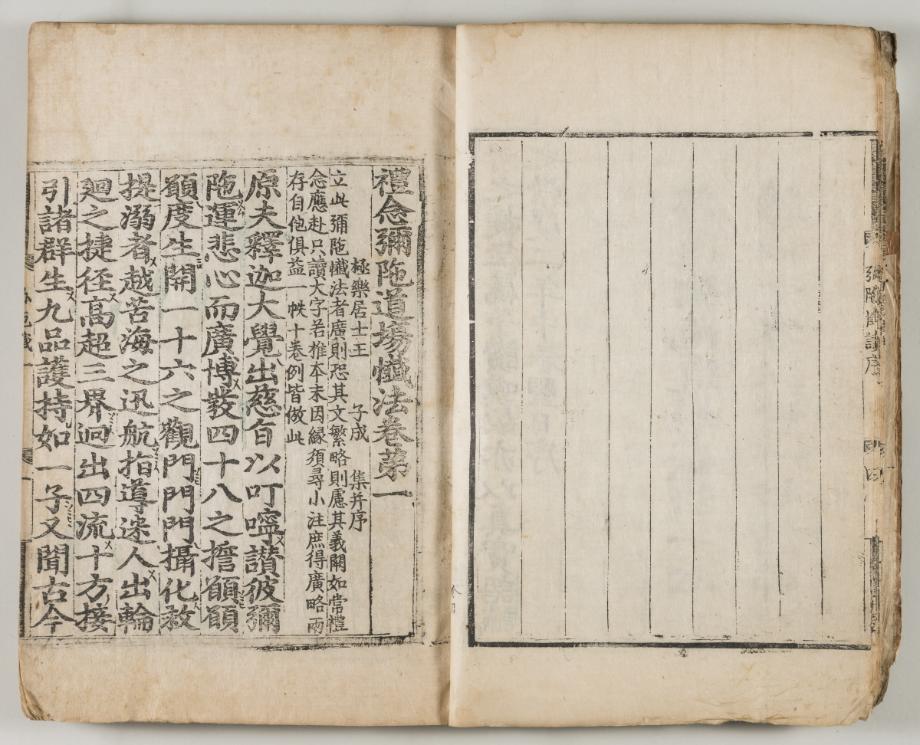 弥陁懺讃序
禮念彌陁道場懺法卷第一
極樂居士王 子成 集并序
立此彌陁懺法者廣則恐其文繁略則慮其義闕如常禮
念應赴只讀大字若推本末因緣須尋小注庶得廣略兩
存自他俱益一帙十卷例皆倣此
原夫釋迦大覺出慈旨以叮嚀讚彼彌
陁運悲心而廣博發四十八之誓願願
願度生開一十六之觀門門門攝化救
提溺者越苦海之迅航指導迷人出輪
廻之捷徑高超三界迥出四流十方接
引諸群生九品護持如一子又聞古今